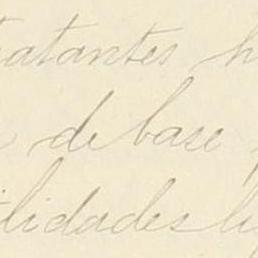 tratantes h
de base
ilidades li